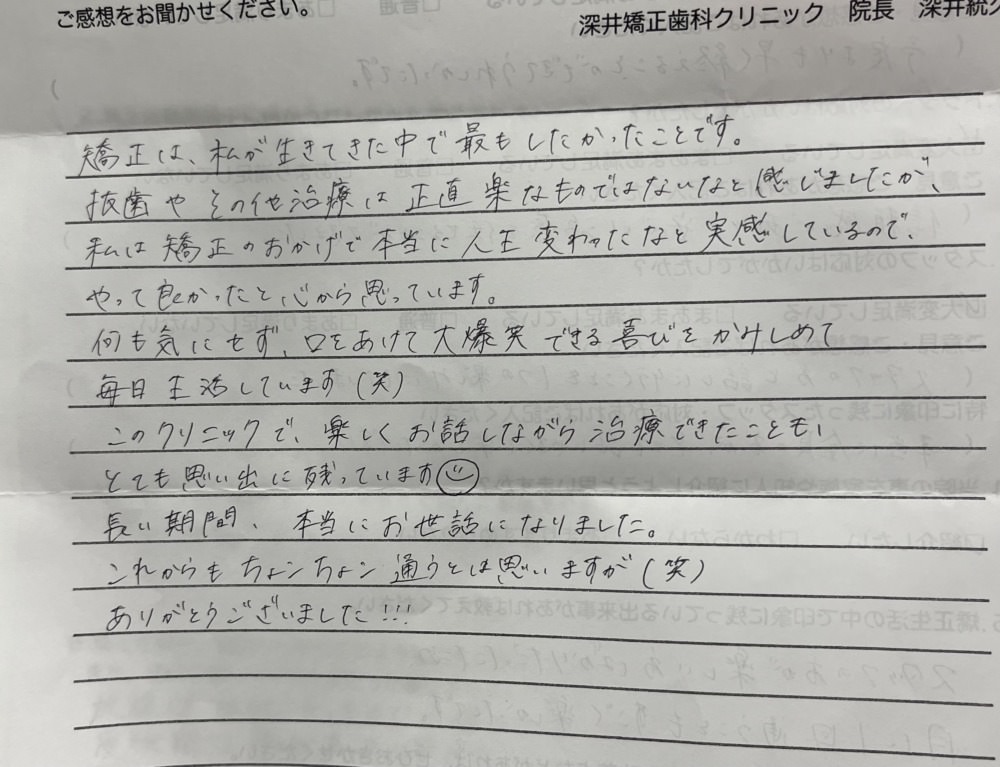 ご感想をお聞かせください。
深井矯正歯科クリニック 院長 深井統久
矯正は、私が生きてきた中で最もしたかったことです。
抜歯やその他治療は正直楽なものではないなと感じましたが、
私は矯正のおかげで本当に人生変わったなと実感しているので、
やって良かったと心から思っています。
何も気にせず、口をあけて大爆笑できる喜びをかみしめて
毎日生活しています(笑)
このクリニックで、楽しくお話しながら治療できたことも、
とても思い出に残っています☺
長い期間、本当にお世話になりました。
これからもちょンちょン通うとは思いますが(笑)
ありがとうございました!!!